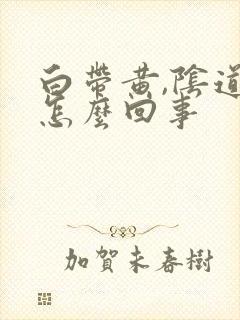 白帶黃,陰道
怎麼回事
加賀未春樹